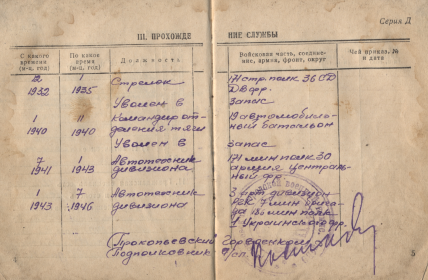 Серия Д
III. ПРОХОЖДЕ НИЕ СЛУЖБЫ
С какого времени (м-ц, год)
По какое время (м-ц, год)
Должность
Войсковая часть, соединение, армия, фронт, округ
Чей приказ, № и дата
2 1932
1 1935
Стрелок
171 стр полк 36 СД
ДВ фр.
Уволен в
запас
1 1940
11 1940
Командир от-
деления тяги
19 автомобиль-
ный батальон
Уволен в
запас
7 1941
1 1943
Автотехник
дивизиона
171 мин полк 30
армия централь-
ный фр.
1 1943
7 1946
Автотехник
дивизиона
3 арт дивизион
РГК 7 мин брига-
да мин полк
1 Украинского фр.
Прокопьевский Горвоенком
Подполковник
5